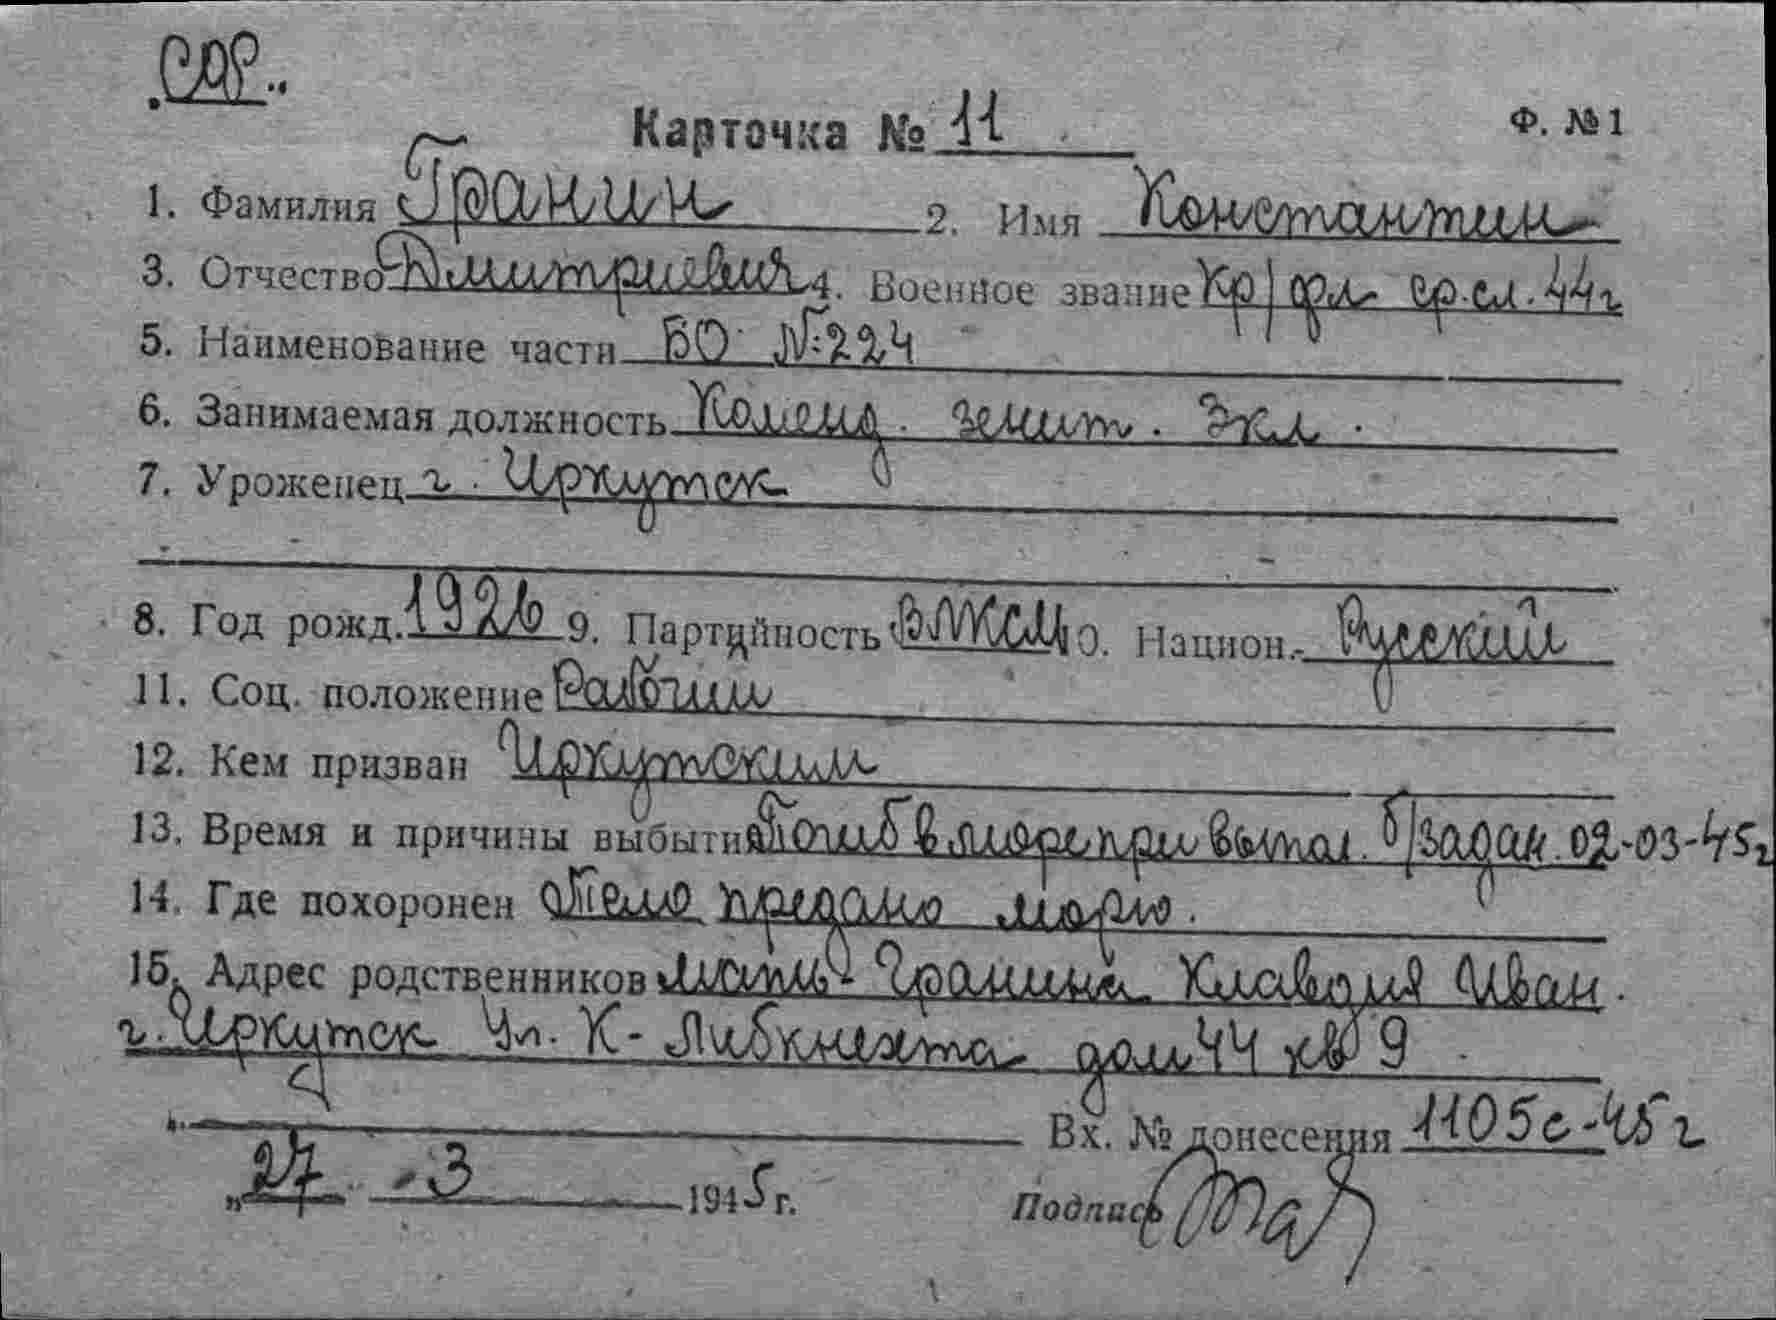 Карточка № 11 Ф. № 1
1. Фамилия Гранин 2. Имя Константин
3. Отчество Дмитриевич 4. Военное звание Кр/фл ср.сл. 44г
5. Наименование части БО №224
6. Занимаемая должность Коменд. зенит. Экл.
7. Уроженец г. Иркутск
8. Год рожд. 1926 9. Партийность ВЛКСМ 10. Национ. Русский
11. Соц. положение Рабочий
12. Кем призван Иркутским
13. Время и причины выбытия Погиб в море при вытол. б/задан. 02-03-45г
14. Где похоронен Тело предано морю.
15. Адрес родственников мать - Гранина Клавдия Иван.
г. Иркутск Ул. К-Либкнехта дом 44 кв 9
Вх. № донесения 1105с-45г
„27 - 3 1945 г. Подпись